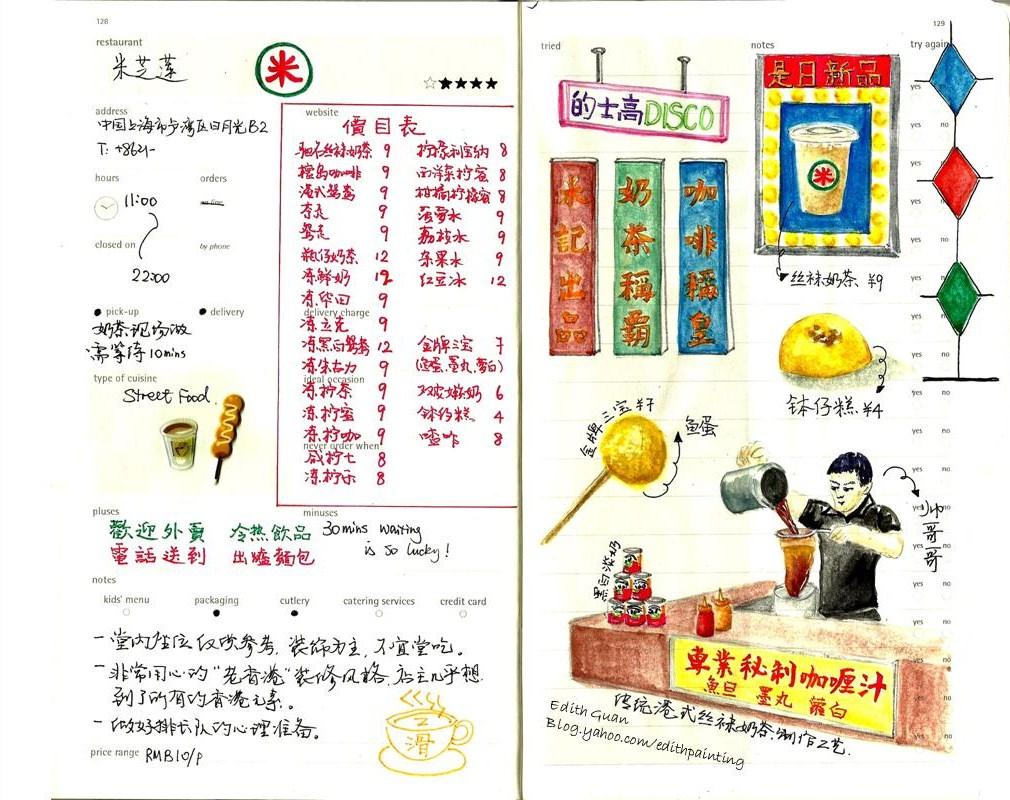 128
restaurant
米芝莲
米
address
中国上海市卢湾区日月光B2
T: +8621-
hours
orders
11:00
on line
closed on
by phone
22:00
pick-up
delivery
奶茶现场做
需等待10mins
type of cuisine
Street Food.
website
價目表
驰名丝袜奶茶 9
檀岛咖啡 9
港式鸳鸯 9
杏走 9
鸳走 9
瓶仔奶茶 12
冻鲜奶 12
冻华田 9
delivery charge
冻立克 9
冻黑白鸳鸯 12
冻朱古力 9
ideal occasion
冻柠茶 9
冻柠蜜 9
冻柠咖 9
never order when
咸柠七 8
冻柠乐 8
柠檬利宾纳 8
西洋菜柠蜜 8
柑桔柠檬蜜 8
菠萝冰 9
荔枝冰 9
杂果冰 9
红豆冰 12
金牌三宝 7
(鱼蛋、墨丸、萝白)
双皮嫩奶 6
钵仔糕 4
喳咋 8
pluses
歡迎外賣 冷热飲品
電話送到 出爐麵包
minuses
30mins waiting
is so lucky!
notes
kids' menu
packaging
cutlery
catering services
credit card
－堂内座位仅供参考,装饰为主,不宜堂吃。
－非常用心的“老香港”装修风格,店主几乎想
到了所有的香港元素。
－做好排长队的心理准备。
price range
RMB10/P
滑
129
tried
notes
try again
的士高DISCO
米記出品
奶茶稱霸
咖啡稱皇
是日新品
米
丝袜奶茶 ¥9
钵仔糕 ¥4
金牌三宝 ¥7
鱼蛋
帅哥哥
黑白淡奶
專業秘制咖喱汁
魚旦 墨丸 蘿白
传统港式丝袜奶茶制作工艺.
Edith Guan
Blog.yahoo.com/edithpainting
yes no
yes no
yes no
yes no
yes no
yes no
yes no
yes no
yes no
yes no
yes no
yes no
yes no